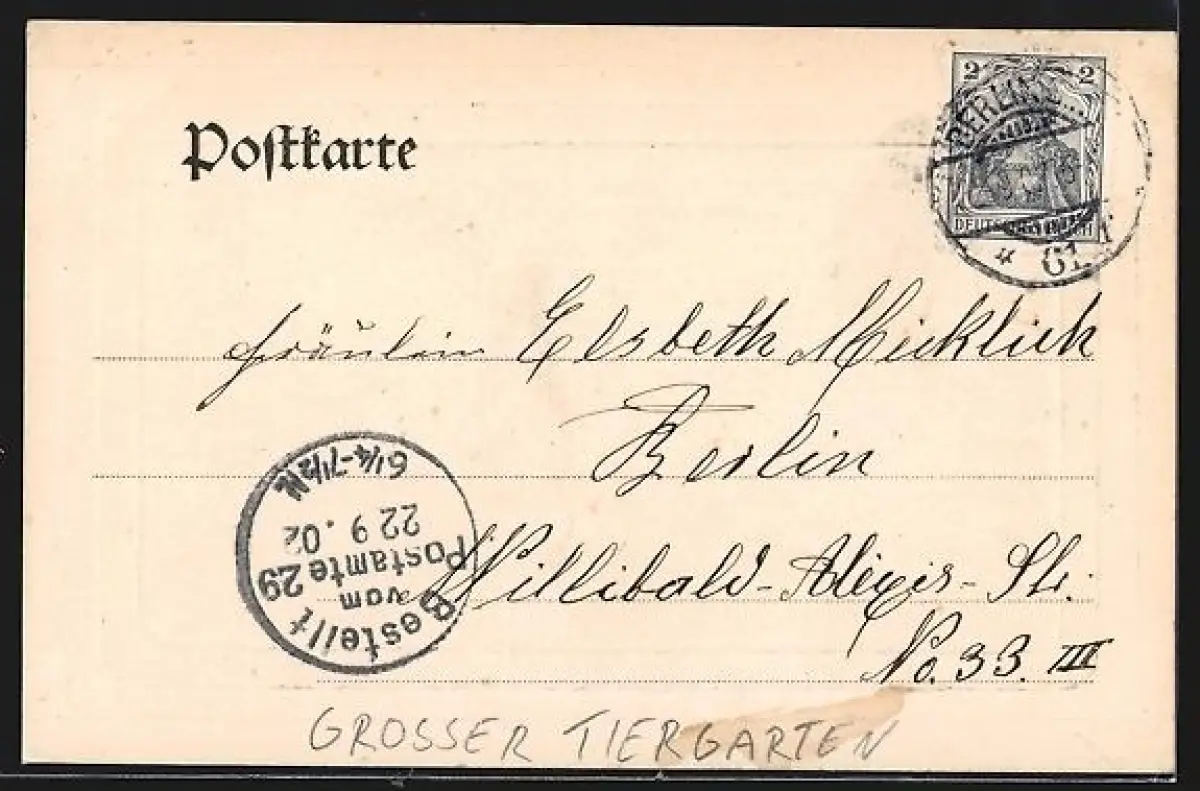 Postkarte
2 2
BERLIN
DEUTSCHES REICH
61.
Fräulein Elsbeth Micklich
Berlin
Willibald-Alexis-Str.
No. 33. III
Bestellt
vom
Postamte 29
22 9. 02
6 1/4-7 1/2 N.
GROSSER TIERGARTEN